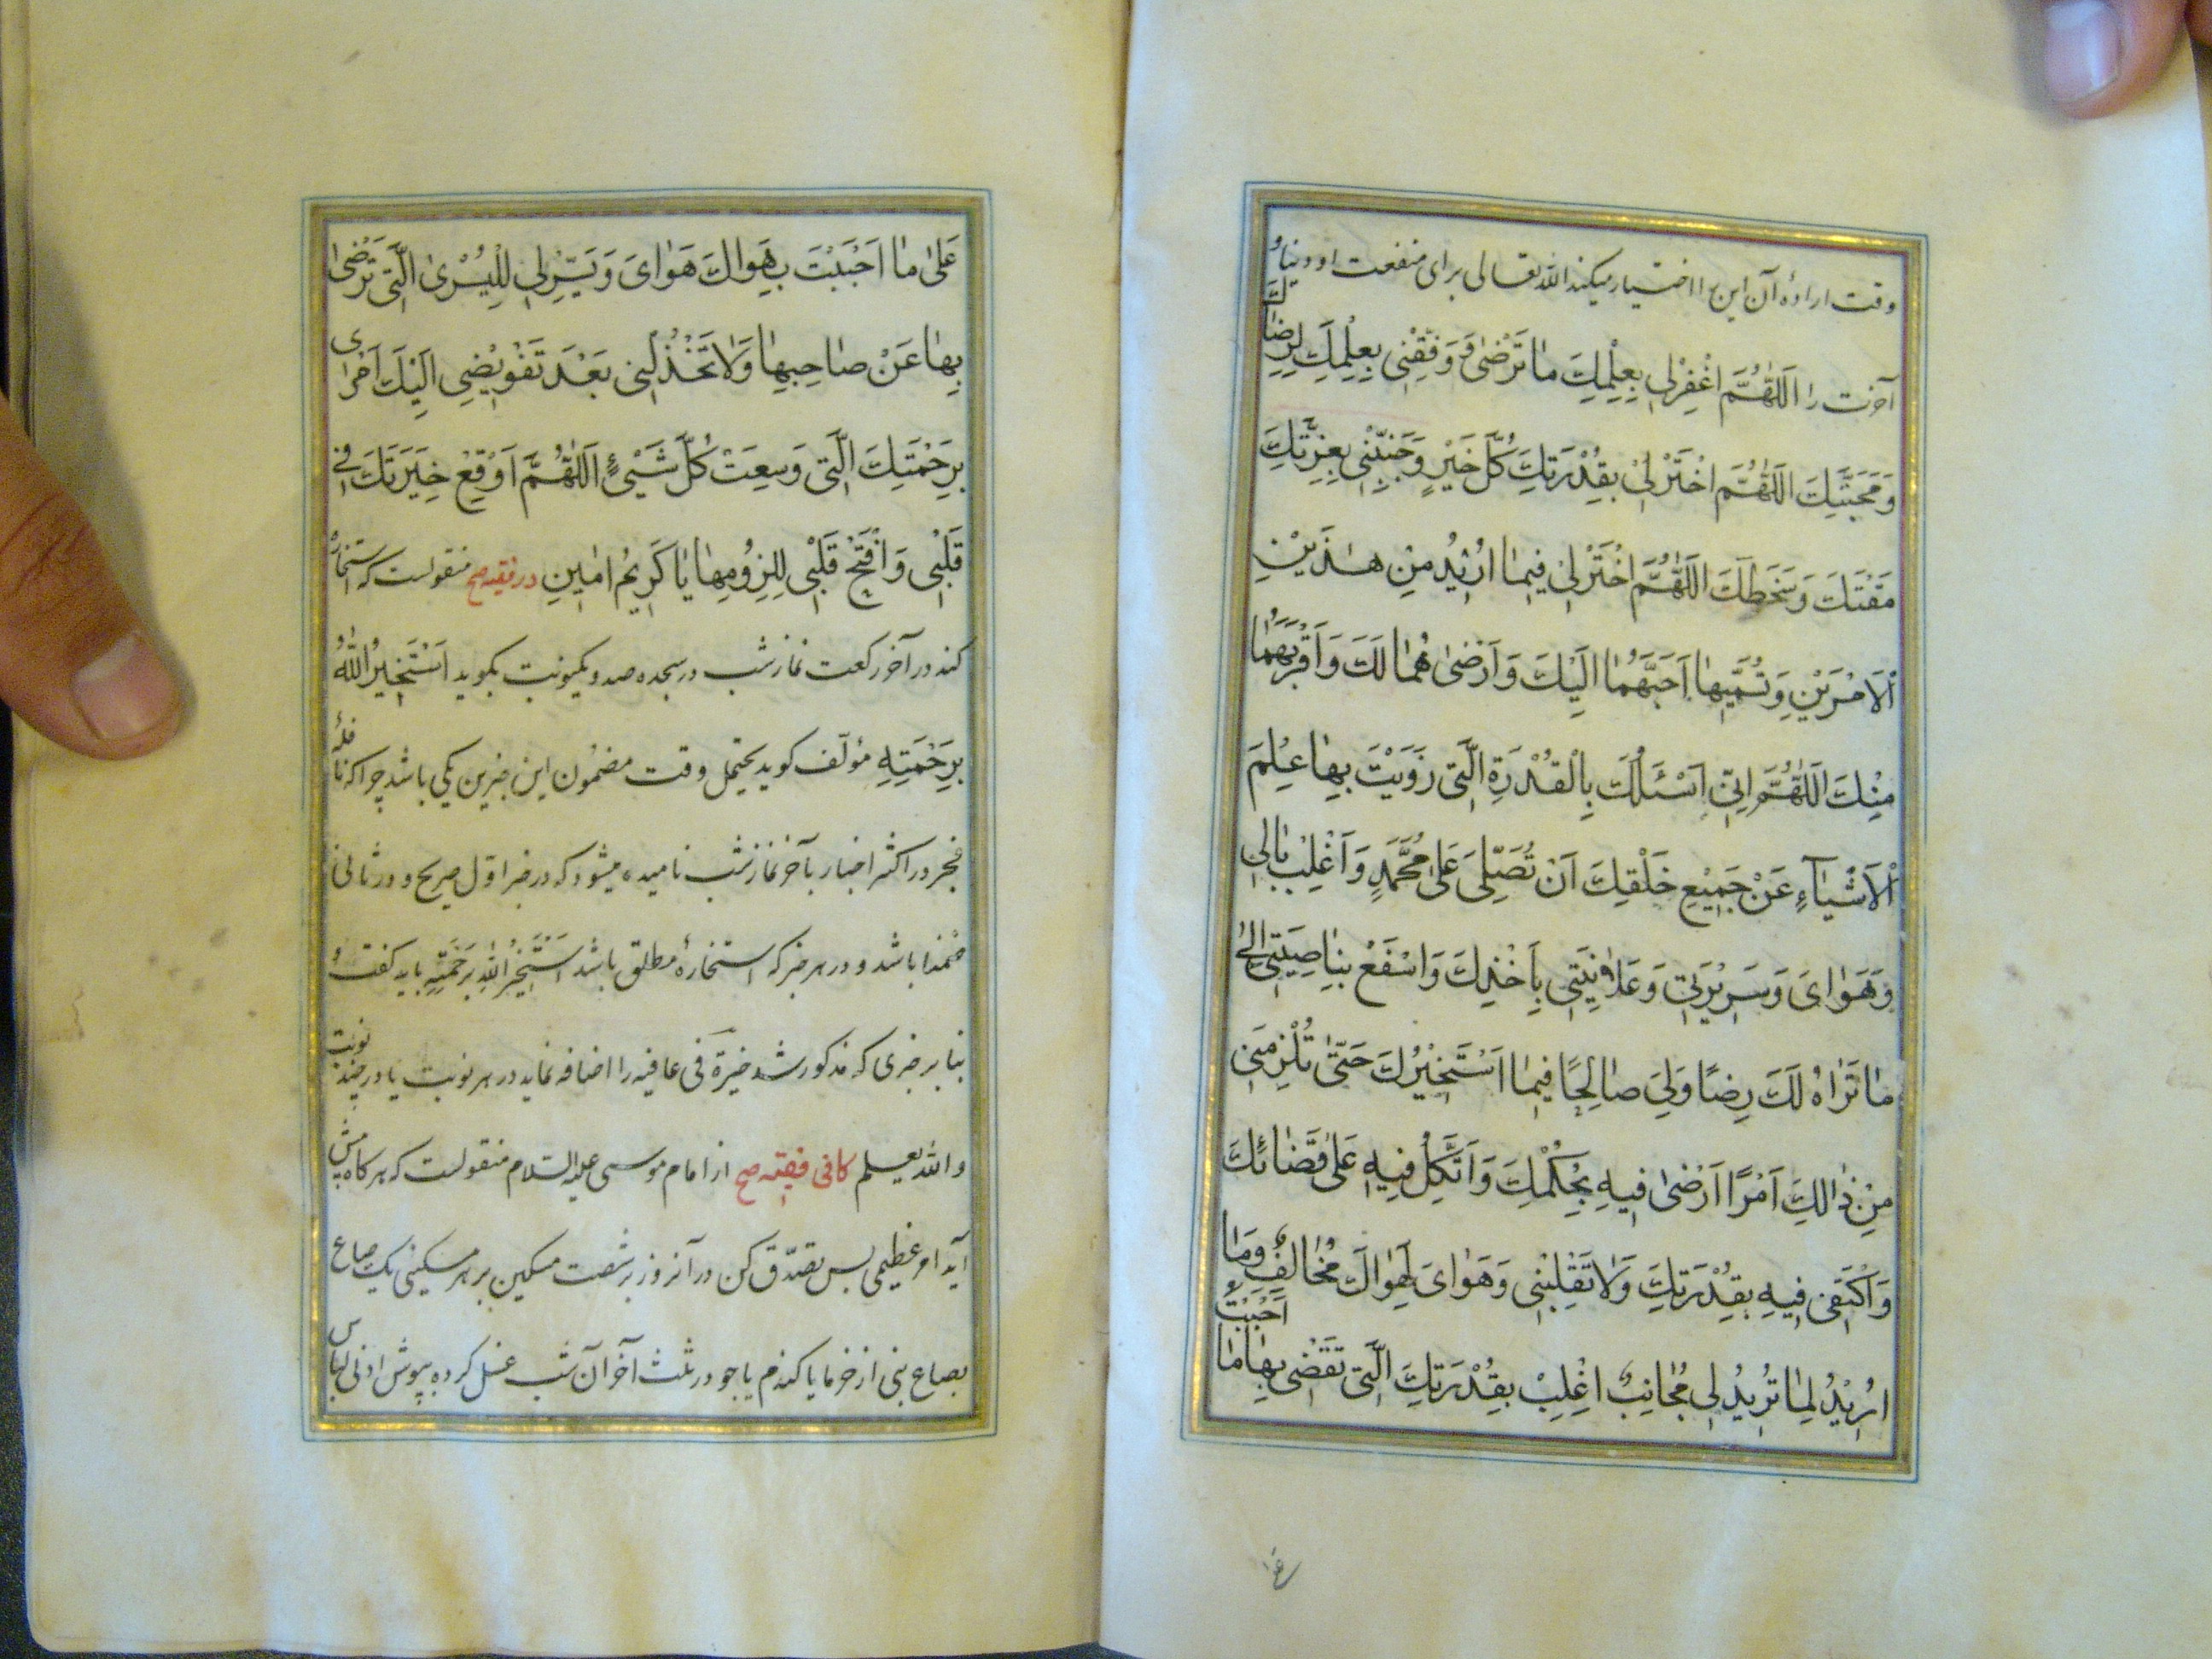 وقت ارادۀ آن این را اختیار میکند الله تعالی برای منفعت او دنیا و
آخرت را اَللّٰهُمَّ اغْفِرْلِی بِعِلْمِكَ مٰا تَرْضٰی وَ وَفِّقْنِی بِعِلْمِكَ لِرِضٰاكَ
وَ مَحَبَّتِكَ اَللّٰهُمَّ اخْتَرْلِیْ بِقُدْرَتِكَ كُلَّ خَیْرٍ وَ جَنِّبْنِی بِعِزَّتِكَ
مَقْتَكَ وَ سَخَطَكَ اَللّٰهُمَّ اخْتَرْلِیْ فِیمٰا اُرِیْدُ مِنْ هٰذَیْنِ
اَلْاَمْرَیْنِ وَ تُسَمِّیهٰا اَحَبَّهُمٰا اِلَیْكَ وَ اَرْضٰی هُمٰا لَكَ وَ اَقْرَبَهُمٰا
مِنْكَ اَللّٰهُمَّ اِنِّی اَسْئَلُكَ بِالْقُدْرَةِ الَّتِی زَوَیْتَ بِهٰا عِلْمَ
اَلْاَشْیٰآءِ عَنْ جَمِیْعِ خَلْقِكَ اَنْ تُصَلِّیَ عَلٰی مُحَمَّدٍ وَ اَغْلِبْ بٰالِی
وَ هَوٰایَ وَ سَرِیْرَتِی وَ عَلٰانِیَتِی بِاَخْذِكَ وَ اسْفَعْ بِنٰاصِیَتِی اِلٰی
مٰا تَرٰاهُ لَكَ رِضًا وَ لِیَ صٰالِحًا فِیمٰا اَسْتَخِیْرُكَ حَتّٰی تُلْزِمَنِی
مِنْ ذٰالِكَ اَمْرًا اَرْضٰی فِیهِ بِحُكْمِكَ وَ اَتَّكِلُ فِیهِ عَلٰی قَضٰائِكَ
وَ اَكْتَفِی فِیهِ بِقُدْرَتِكَ وَ لٰا تَقْلِبْنِی وَ هَوٰایَ لِهَوٰاكَ مُخٰالِفٌ وَ مٰا
اُرِیْدُ لِمٰا تُرِیْدُ لِی مُجٰانِبٌ اغْلِبْ بِقُدْرَتِكَ الَّتِی تَقْضِی بِهٰا مٰا اَحْبَبْتَ
عَلٰی مٰا اَحْبَبْتَ بِهَوٰاكَ هَوٰایَ وَ یَسِّرْلِی لِلْیُسْرٰی الَّتِی تَرْضٰی
بِهٰا عَنْ صٰاحِبِهٰا وَ لٰا تَخْذُلْنِی بَعْدَ تَفْوِیْضِی اِلَیْكَ اَمْرِی
بِرَحْمَتِكَ الَّتِی وَسِعَتْ كُلَّ شَیْیٍٔ اَللّٰهُمَّ اَوْقِعْ خِیَرَتَكَ فِی
قَلْبِی وَ افْتَحْ قَلْبِی لِلُزُومِهٰا یٰا كَرِیْمُ اٰمِینَ در فقیه صح منقولست که استخاره
کند در آخر رکعت نماز شب در سجده صد و یکنوبت بگوید اَسْتَخِیْرُ اللّٰهَ
بِرَحْمَتِهِ مؤلّف کوید یحتمل وقت مضمون این خبرین یکی باشد چرا که نافله
فجر در اکثر اخبار بآخر نماز شب نامیده میشود که در خبر اول صریح و در ثانی
ضمنا باشد و در هر خبر که استخارۀ مطلق باشد اَسْتَخِیْرُ اللّٰهَ بِرَحْمَتِهِ باید کفت و
بنا بر خبری که مذکور شد خیرة فی عافیه را اضافه نماید در هر نوبت یا در چند نوبت
و الله یعلم کافی فقیه صح از امام موسی علیه السّلام منقولست که هر کاه پیش
آید امر عظیمی پس تصدّق کن در آنروز بر شصت مسکین بر هر مسکینی یک صاع
بصاع نبی از خرما یا کندم یا جو در ثلث آخر آن شب غسل کرده بپوش ادنی لباس